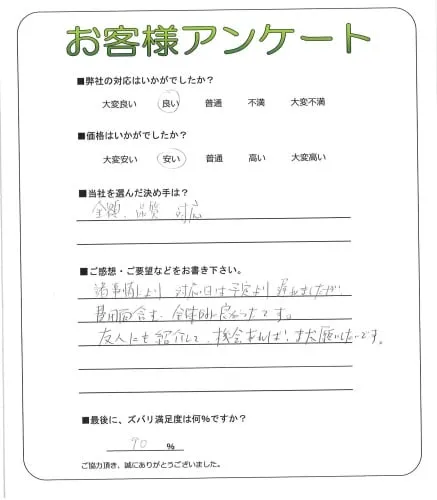 お客様アンケート
■弊社の対応はいかがでしたか?
大変良い 良い 普通 不満 大変不満
■価格はいかがでしたか?
大変安い 安い 普通 高い 大変高い
■当社を選んだ決め手は?
金額、品質 対応
■ご感想・ご要望などをお書き下さい。
諸事情により 対応日は予定より遅れましたが
費用面含め 全体的に良かったです。
友人にも紹介して、機会あれば、また願いたいです。
■最後に、ズバリ満足度は何%ですか?
90 %
ご協力頂き、誠にありがとうございました。